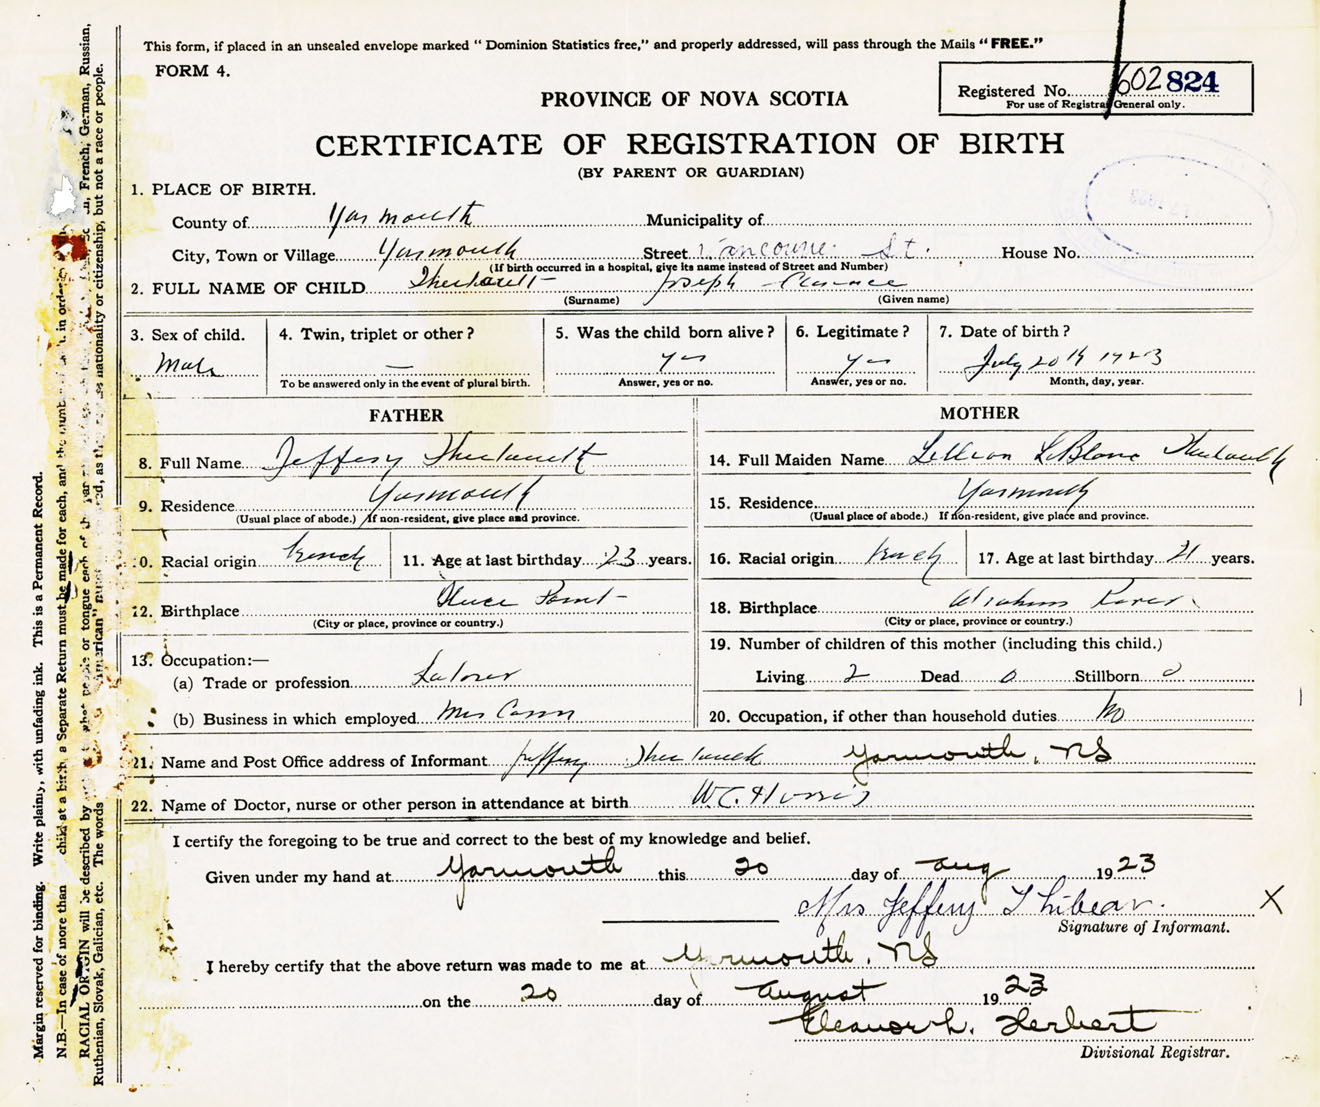 This form, if placed in an unsealed envelope marked " Dominion Statistics free," and properly addressed, will pass through the Mails "FREE."
FORM 4.
Registered No. 602 824
For use of Registrar General only.
PROVINCE OF NOVA SCOTIA
CERTIFICATE OF REGISTRATION OF BIRTH
(BY PARENT OR GUARDIAN)
1. PLACE OF BIRTH.
County of Yarmouth Municipality of
City, Town or Village Yarmouth Street Vancouver St. House No.
(If birth occurred in a hospital, give its name instead of Street and Number)
2. FULL NAME OF CHILD Joseph Clarence
(Surname) (Given name)
3. Sex of child. 4. Twin, triplet or other? 5. Was the child born alive? 6. Legitimate? 7. Date of birth?
Male — Yes Yes July 20th 1923
To be answered only in the event of plural birth. Answer, yes or no. Answer, yes or no. Month, day, year.
FATHER MOTHER
8. Full Name Jeffery 14. Full Maiden Name Lillian LeBlanc
9. Residence Yarmouth 15. Residence Yarmouth
(Usual place of abode.) If non-resident, give place and province. (Usual place of abode.) If non-resident, give place and province.
10. Racial origin French 11. Age at last birthday 23 years. 16. Racial origin French 17. Age at last birthday 21 years.
12. Birthplace 18. Birthplace
(City or place, province or country.) (City or place, province or country.)
13. Occupation:— 19. Number of children of this mother (including this child.)
(a) Trade or profession Laborer Living 2 Dead 0 Stillborn 0
(b) Business in which employed 20. Occupation, if other than household duties No
21. Name and Post Office address of Informant Jeffery Yarmouth, NS
22. Name of Doctor, nurse or other person in attendance at birth W.C. Harris
I certify the foregoing to be true and correct to the best of my knowledge and belief.
Given under my hand at Yarmouth this 20 day of Aug 1923
Mrs Jeffery Thibeau. X
Signature of Informant.
I hereby certify that the above return was made to me at Yarmouth, NS
on the 20 day of August 1923
Eleanor L. Herbert
Divisional Registrar.
Margin reserved for binding. Write plainly, with unfading ink. This is a Permanent Record.
N.B.—In case of more than child at a birth, a Separate Return must be made for each, and the number of each, in order
RACIAL ORIGIN will be described by what people or tongue each of the French, German, Russian,
Ruthenian, Slovak, Galician, etc. The words "American" nationality or citizenship, but not a race or people.